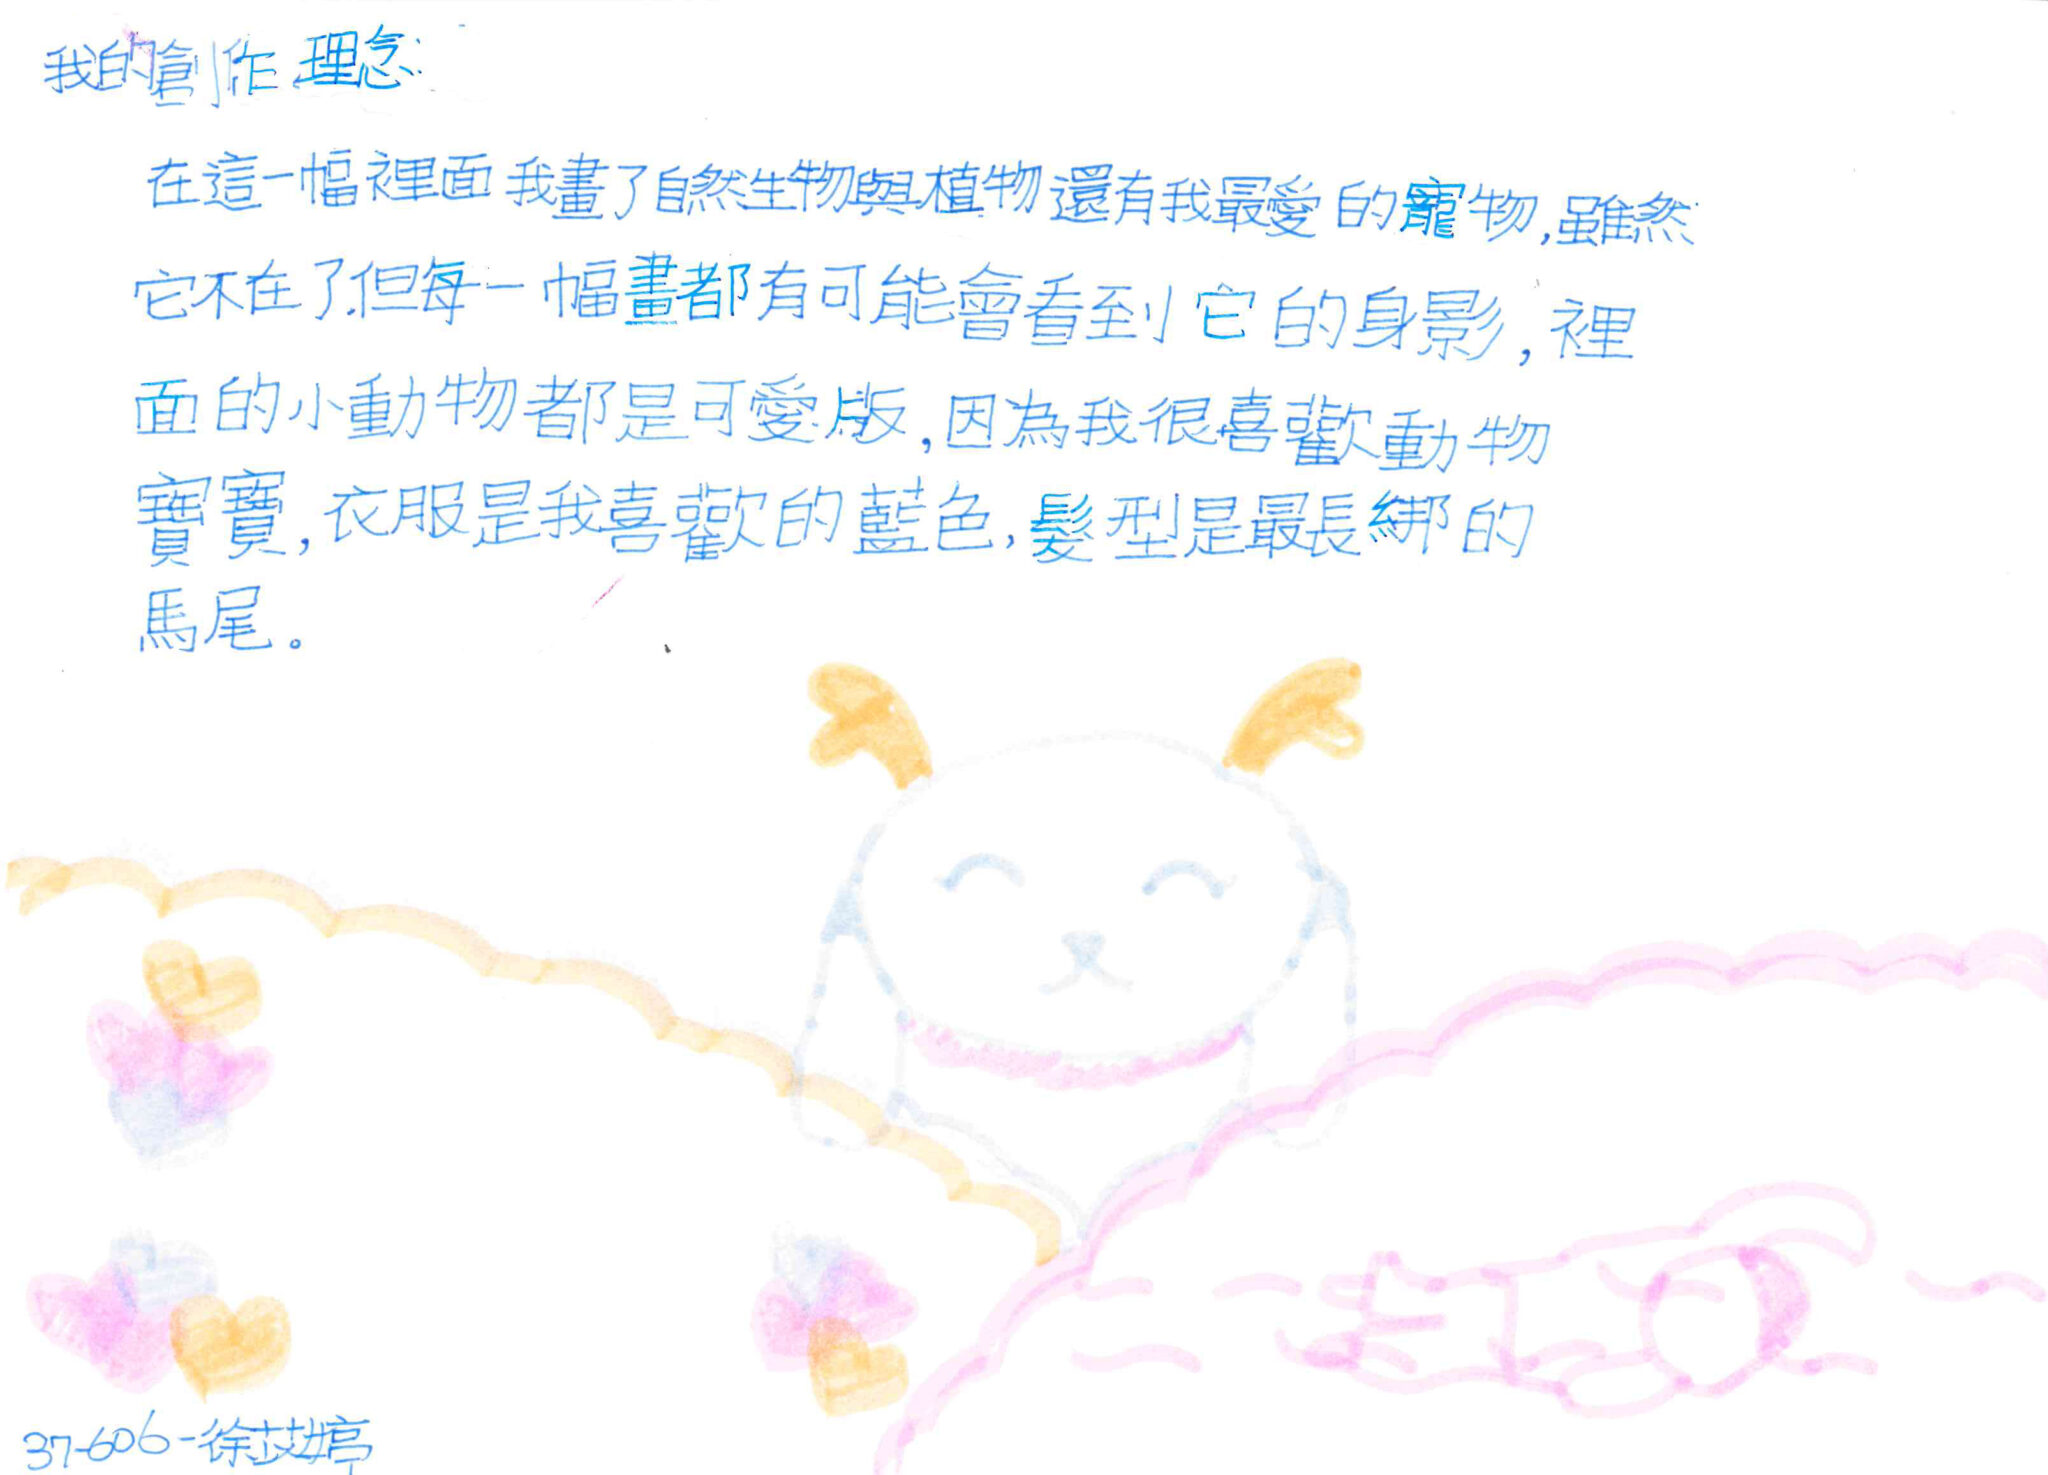 我的創作理念:
在這一幅裡面我畫了自然生物與植物還有我最愛的寵物,雖然
它不在了.但每一幅畫都有可能會看到它的身影,裡
面的小動物都是可愛版,因為我很喜歡動物
寶寶,衣服是我喜歡的藍色,髮型是最長綁的
馬尾。
37-606-徐苡婷